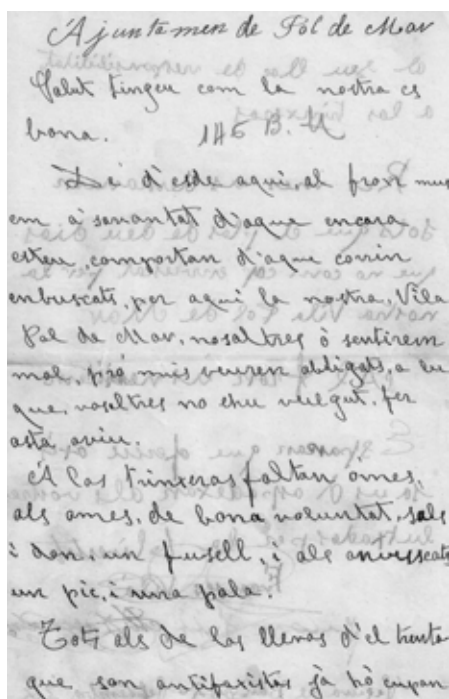 Ajuntamen de Pol de Mar
Salut tingeu com la nostra es
bona. 146 B. M
Dei d'esde aqui, al fron mus
em a'sanantat d'aque encara
esteu, comportan d'aque corrin
enbuscats, per aqui la nostra, Vila
Pol de Mar, nosaltres ò sentirem
mol, pró muis veurem obligats, a eu
que, vosaltres no eheu vulgut, fer
asta aviu.
A las trinxeras faltan omes,
als omes, de bona voluntat, sals
i don, un fusell, i als anvuscats
un pic, i una pala.
Tots als de las llevas d'el trenta
que son antifaxistes ja hò cupan